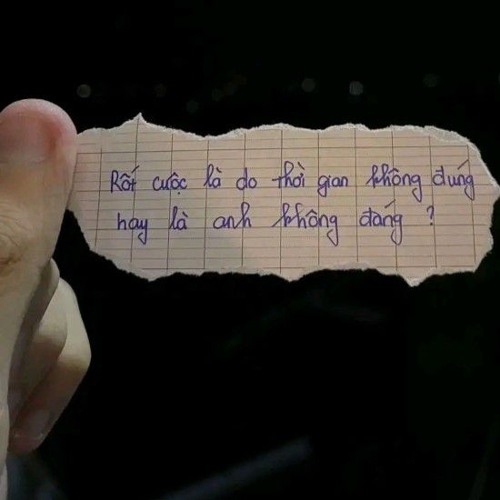 Rốt cuộc là do thời gian không đúng
hay là anh không đáng ?